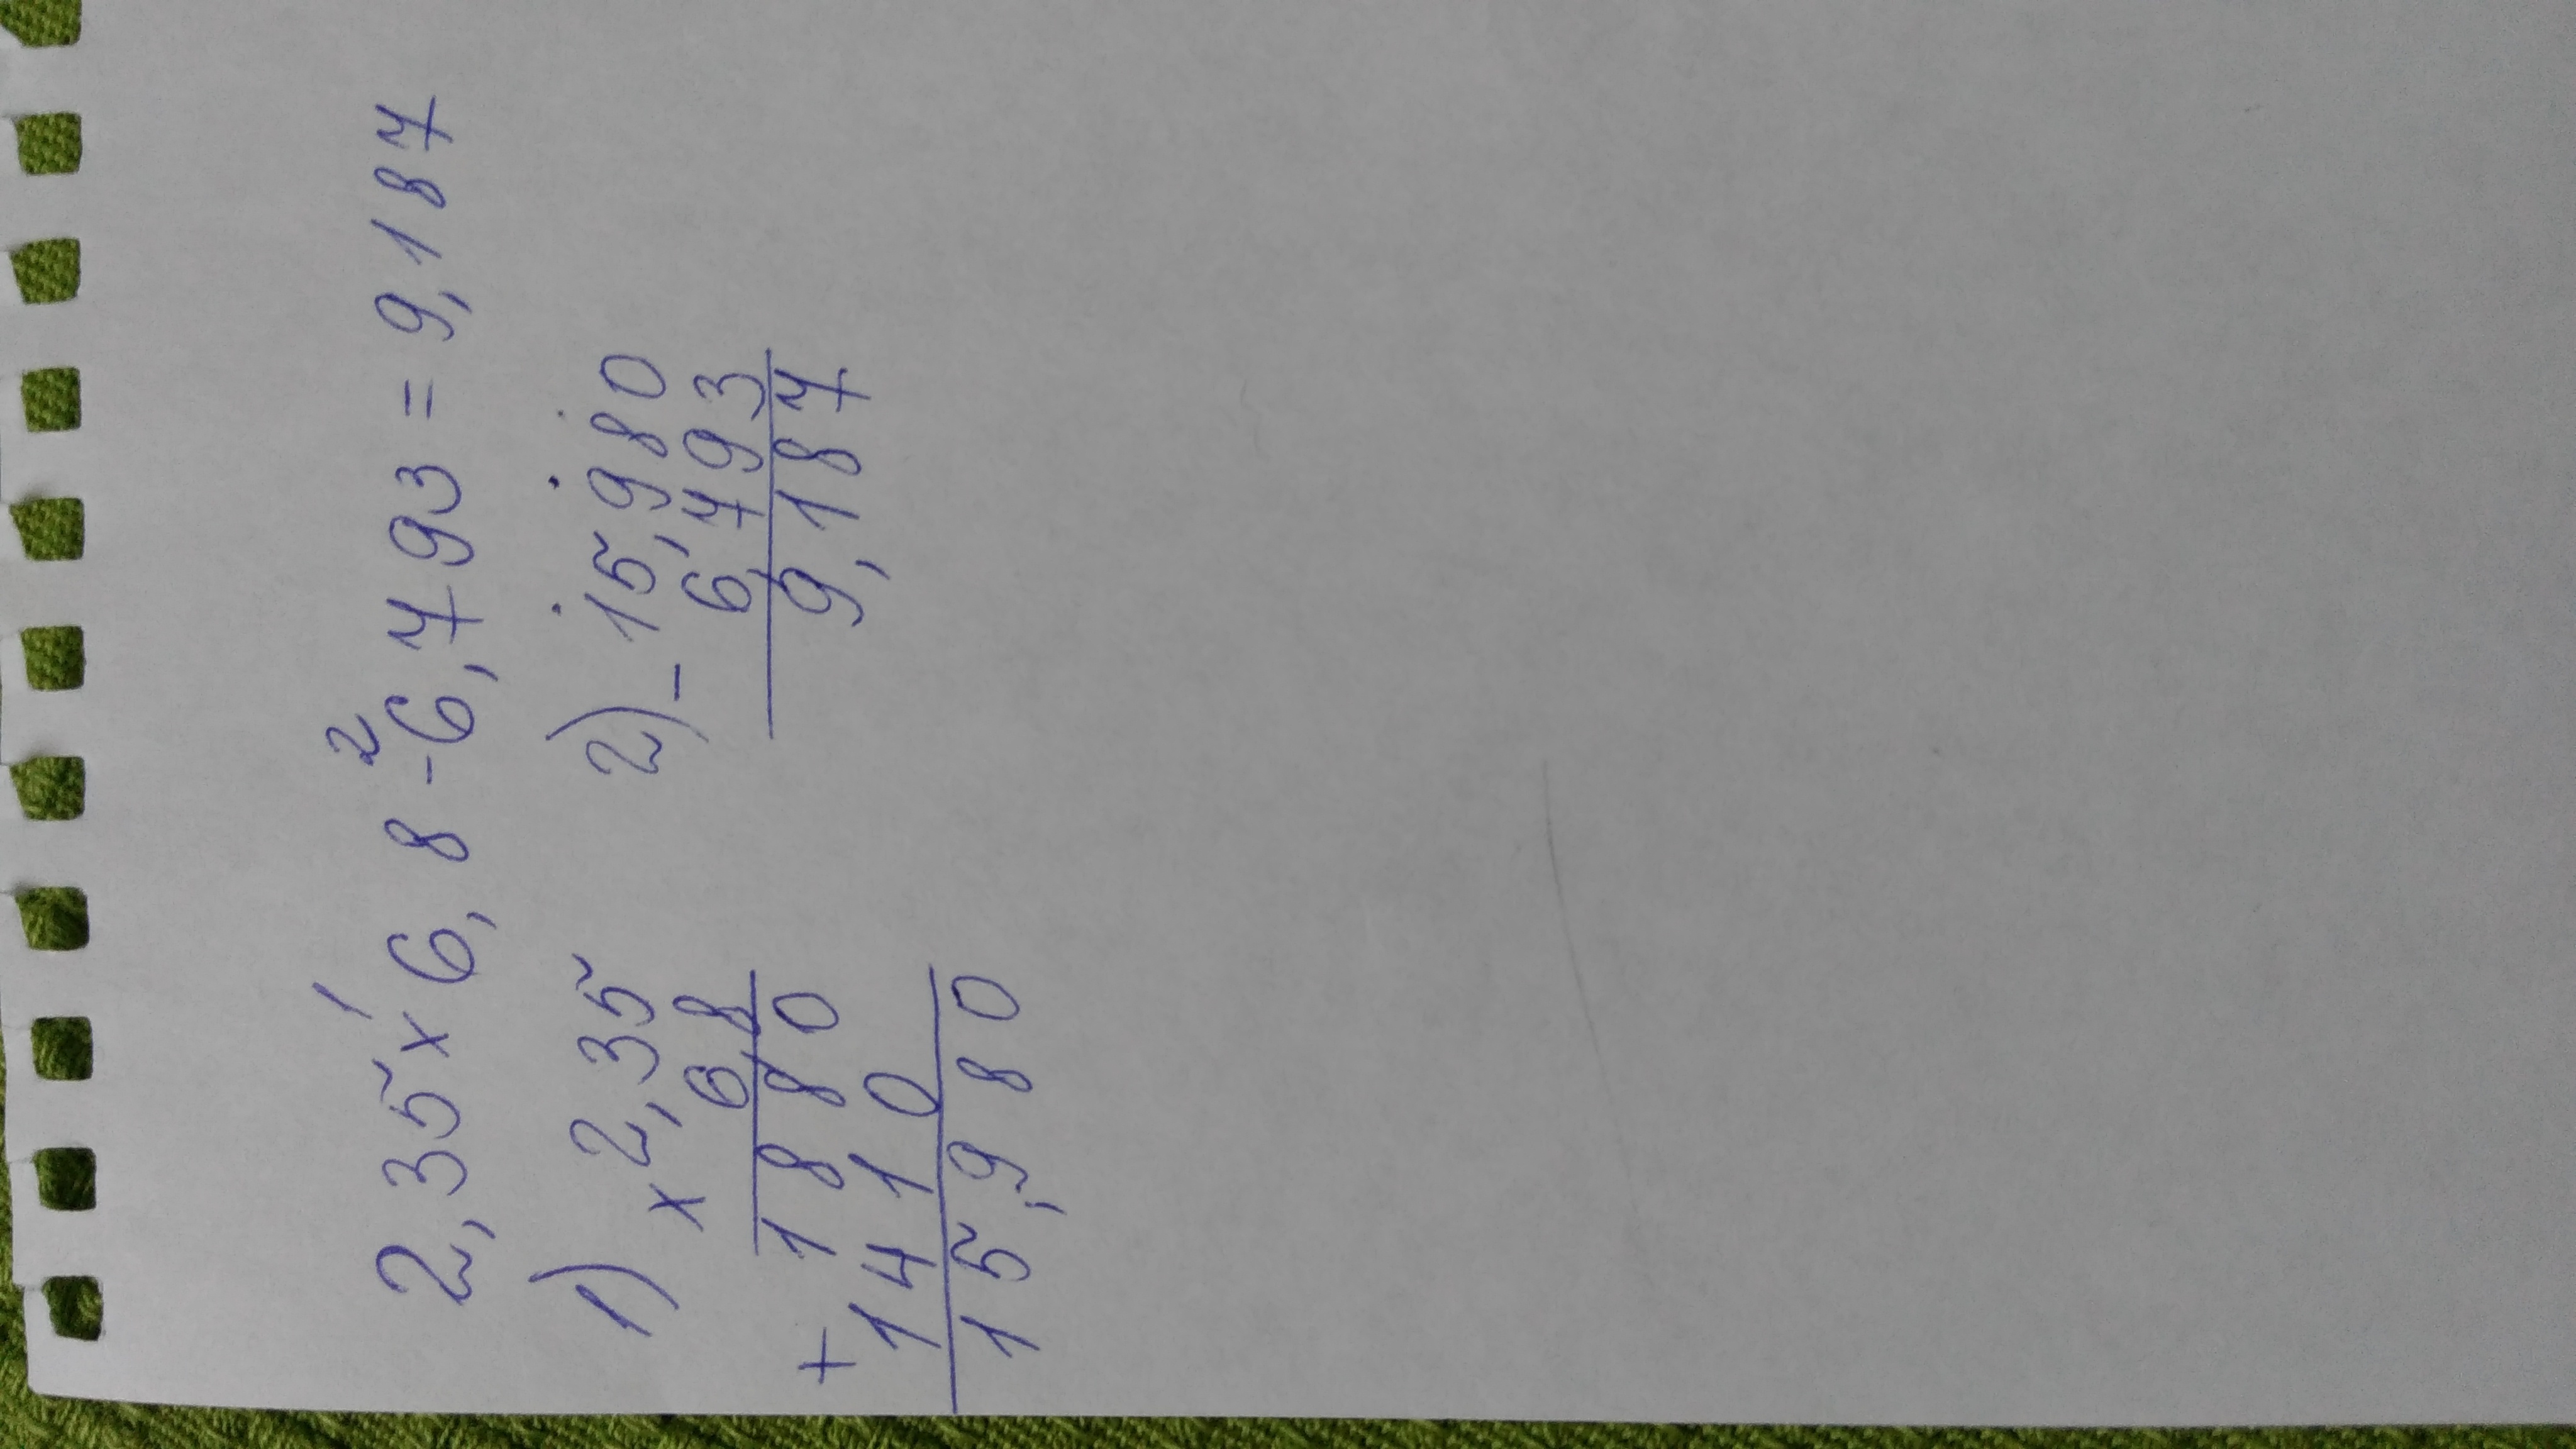 2,35 × 6,8 - 6,793 = 9,187
1 2
1) × 2,35 2) - 15,980
6,8 6,793
1880 9,187
+ 1410
15,980